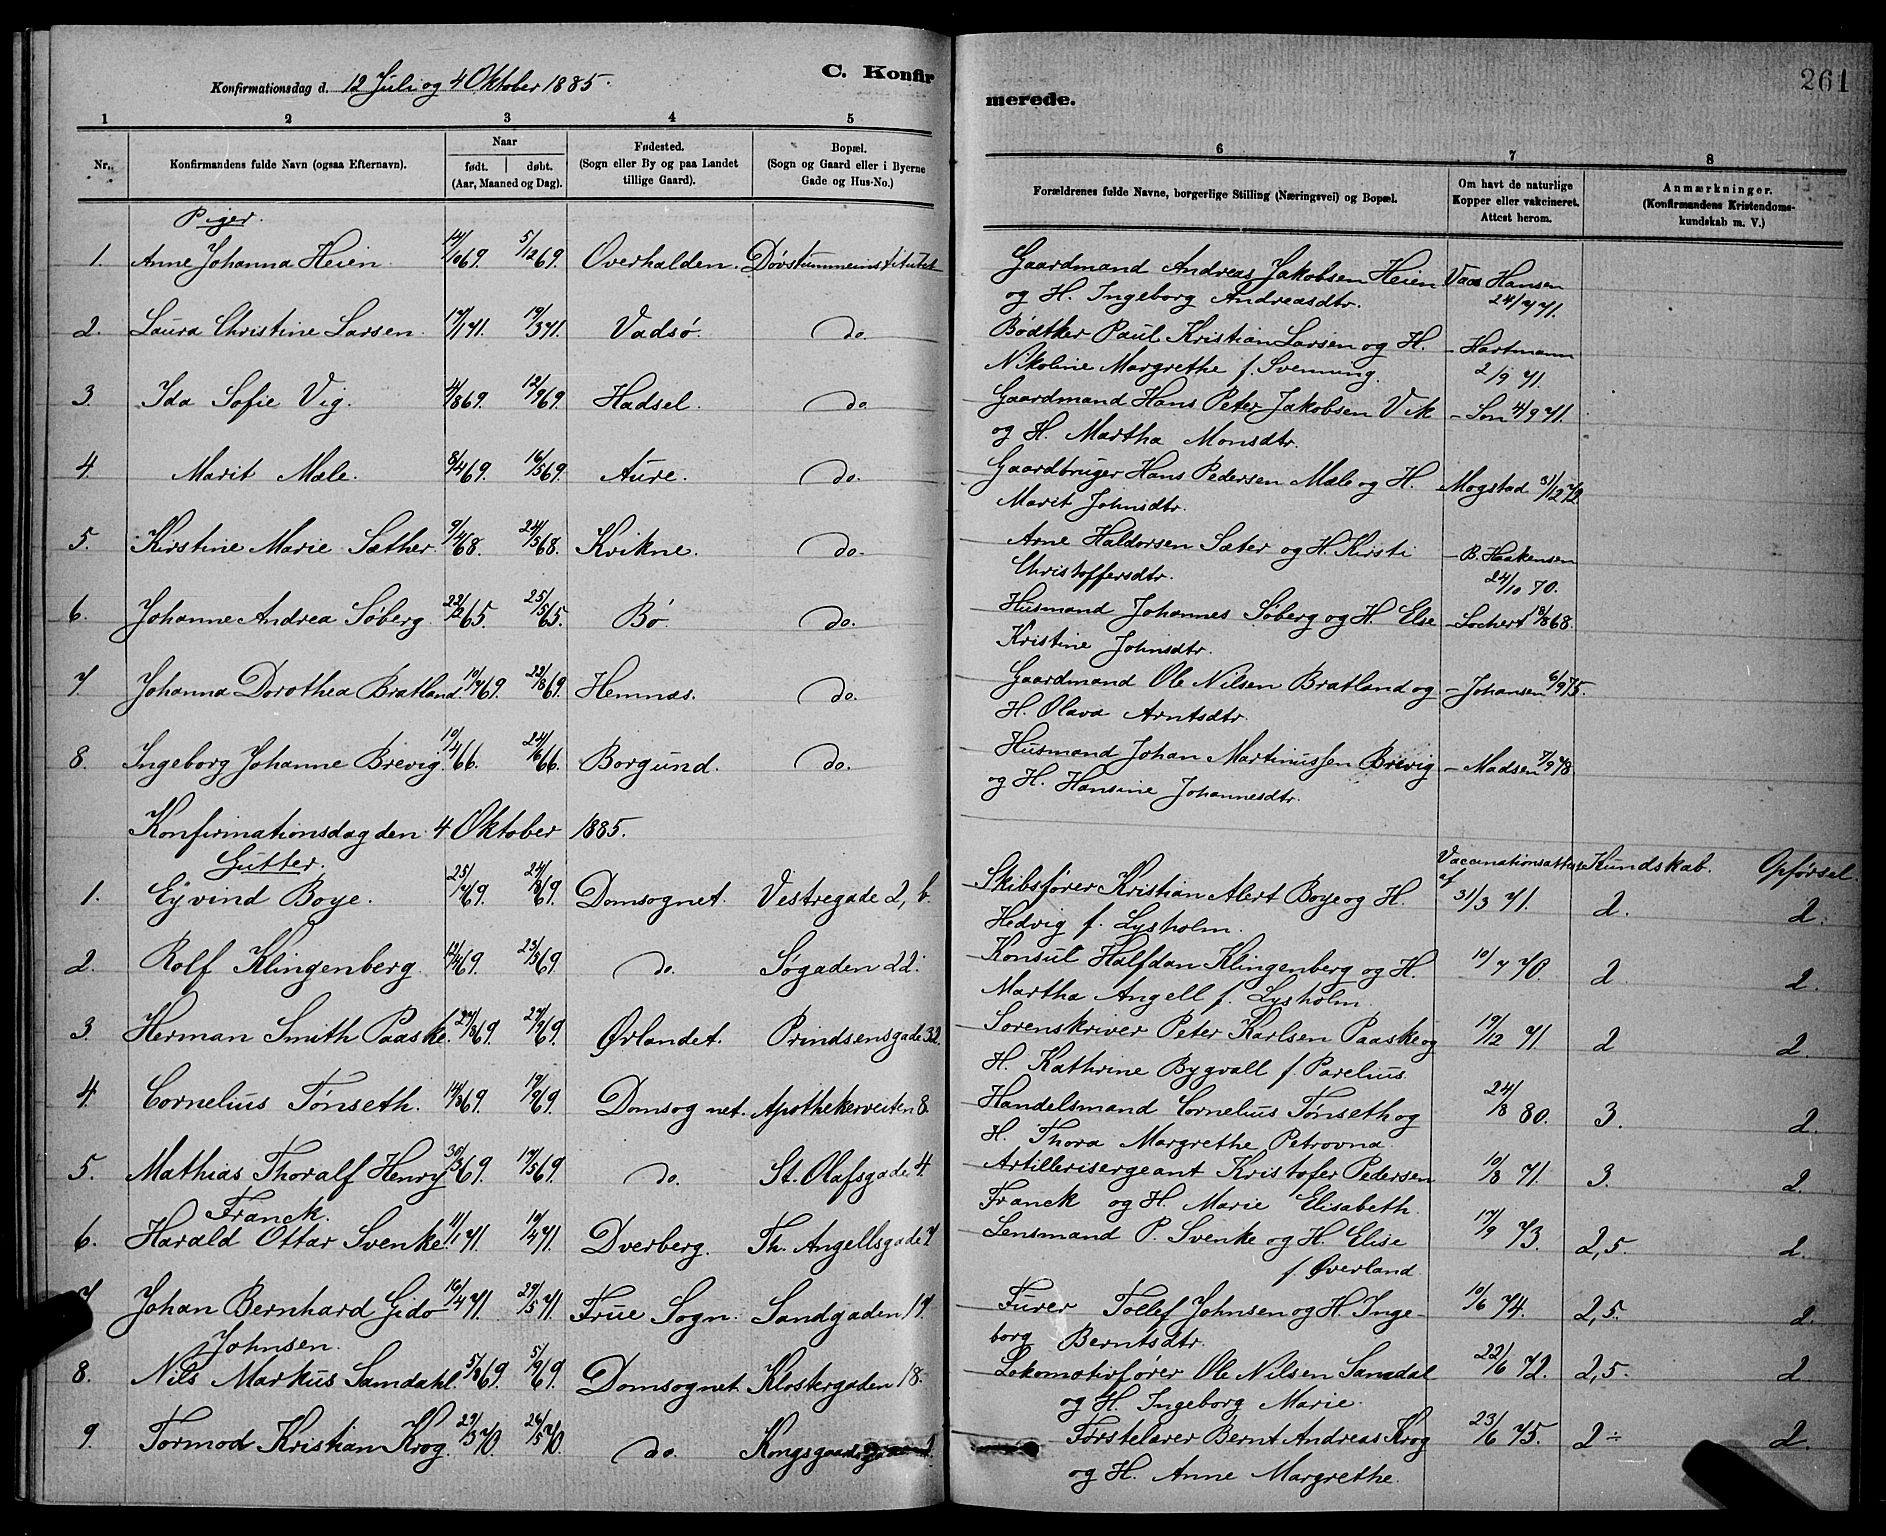 Konfirmationsdag d. 12 Juli og 4 Oktober 1885.
C. Konfirmerede.
261
1 2 3 4 5 6 7 8
Nr.
Konfirmandens fulde Navn (ogsaa Efternavn).
Naar
født. døbt.
(Aar, Maaned og Dag).
Fødested.
(Sogn eller By og paa Landet
tillige Gaard).
Bopæl.
(Sogn og Gaard eller i Byerne
Gade og Hus-No.)
Forældrenes fulde Navne, borgerlige Stilling (Næringsvei) og Bopæl.
Om havt de naturlige
Kopper eller vakcineret.
Attest herom.
Anmærkninger.
(Konfirmandens Kristendoms-
kundskab m. V.)
Piger.
1. Anne Johanna Heien. 14/10 69. 5/12 69. Overhalden. Døvstummeinstitutet Gaardmand Andreas Jakobsen Heien Vac. Hansen
og H. Ingeborg Andreasdtr. 24/7 71.
2. Laura Christine Larsen. 17/1 71. 19/3 71. Vadsø. do. Bødtker Paul Kristian Larsen og H. - Hartmann
Nikoline Margrethe f. Svenning. 2/9 71.
3. Ida Sofie Vig. 4/8 69. 12/9 69. Hadsel. do Gaardmand Hans Peter Jakobsen Vik - Son 4/9 71.
og H. Martha Monsdtr.
4. Marit Mæle. 8/4 69. 16/5 69. Aure. do. Gaardbruger Hans Pedersen Mæle og H. Mogstad 31/12 72.
Marit Johnsdtr.
5. Kirstine Marie Sæther. 9/4 68. 24/5 68. Kvikne. do. Arne Haldorsen Sæter og H. Kirsti - B. Haakensen
Christoffersdtr. 24/10 70.
6. Johanne Andrea Søberg. 22/2 65. 25/5 65. Bø. do. Husmand Johannes Søberg og H. Else - Lochert 18/8 68.
Kristine Johnsdtr.
7 Johanna Dorothea Bratland 10/7 69. 22/8 69. Hemnæs. do. Gaardmand Ole Nilsen Bratland og - Johansen 6/9 75.
H. Olava Arntsdtr.
8. Ingeborg Johanne Brevig. 10/4 66. 24/6 66. Borgund. do. Husmand Johan Martinussen Brevig - Madsen 7/9 78.
og H. Hansine Johannesdtr.
Konfirmationsdag den 4 Oktober 1885.
Gutter. Vaccinationsattest Kundskab. Opførsel.
1. Eyvind Boye. 25/7 69. 24/8 69. Domsognet. Vestregade 2, b. Skibsfører Kristian Alert Boye og H. af 31/3 71. 2. 2.
Hedvig f. Lysholm.
2. Rolf Klingenberg. 12/4 69. 23/5 69. do. Søgaden 22. Konsul Halfdan Klingenberg og H. 10/7 70. 2 2.
Martha Angell f. Lysholm.
3. Herman Smith Paaske. 27/8 69. 27/9 69. Ørlandet. Prindsensgade 32. Sorenskriver Peter Karlsen Paaske og 19/12 71. 2 2.
H. Kathrine Bygvall f. Parelius.
4. Cornelius Tønseth. 14/3 69. 19/9 69. Domsognet. Apothekerveiten 8. Handelsmand Cornelius Tønseth og 24/8 80. 3. 2.
H. Thora Margrethe Petrovna
5. Mathias Thoralf Henry 30/3 69. 17/5 69. do. St. Olafsgade 4. Artillerisergeant Kristofer Pedersen 10/8 71. 3. 2.
Franck. Franck og H. Marie Elisabeth.
6. Harald Ottar Svenke. 11/1 71. 10/4 71. Dverberg. Th. Angellsgade 7 Lensmand P. Svenke og H. Elise 17/9 73. 2,5. 2.
f. Øverland.
7 Johan Bernhard Gido 16/4 71. 29/5 71. Frue Sogn. Sandgaden 17. Furer Tollef Johnsen og H. Inge- 10/6 74. 2,5. 2.
Johnsen. borg Berntsdtr.
8. Nils Markus Samdahl. 5/8 69. 5/9 69. Domsognet. Klostergaden 18. Lokomotivfører Ole Nilsen Samdal 22/6 72. 2,5. 2.
og H. Ingeborg Marie.
9. Tormod Kristian Krog. 29/3 70. 26/5 70. do. Førstelærer Bernt Andreas Krog 23/6 75. 2÷ 2.
og H. Anne Margrethe.